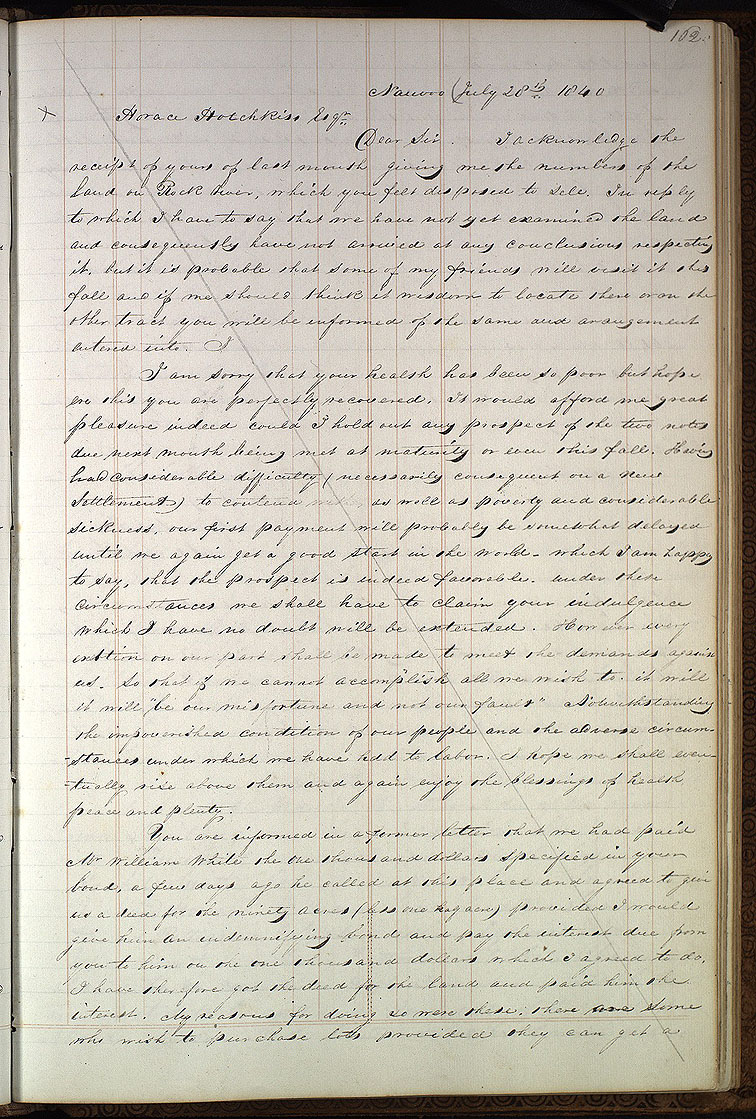 102.
Nauvoo July 28th 1840
Horace Hotchkiss Esqr
Dear Sir. I acknowledge the
receipt of yours of last month giving me the numbers of the
land on Rock River, which you felt disposed to sell. In reply
to which I have to say that we have not yet examined the land
and consequently have not arrived at any conclusions respecting
it. but it is probable that some of my friends will visit it this
fall and if we should think it wisdom to locate there or on the
other tract you will be informed of the same and arangement
entered into. I
I am sorry that your health has been so poor but hope
ere this you are perfectly recovered. It would afford me great
pleasure indeed could I hold out any prospect of the two notes
due next month being met at maturity or even this fall. Having
had considerable difficulty (necessarily consequent on a new
Settlement) to contend with, as well as poverty and considerable
sickness, our first payment will probably be somewhat delayed
until we again get a good start in the world - which I am happy
to say, that the prospect is indeed favorable. under these
circumstances we shall have to claim your indulgence
which I have no doubt will be extended. However every
exertion on our part shall be made to meet the demands against
us. so that if we cannot accomplish all we wish to. it will
it will "be our misfortune and not our fault" Notwithstanding
the impoverished condition of our people and the adverse circum-
-stances under which we have had to labor. I hope we shall even-
-tually rise above them and again enjoy the blessings of health
peace and plenty.
You are informed in a former letter that we had paid
Mr William White the one thousand dollars specified in your
bond, a few days ago he called at this place and agreed to give
us a deed for the ninety acres (less one half acre) provided I would
give him an indemnifying bond and pay the interest due from
you to him on the one thousand dollars which I agreed to do.
I have therefore got the deed for the land and paid him the
interest. My reasons for doing so were these. there are some
who wish to purchase lots provided they can get a